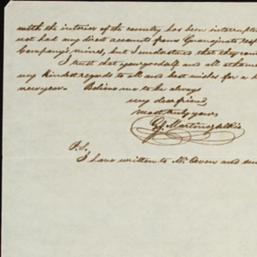 with the interior of the country has been interrupte
not had any direct accounts from Guanajuato resp
Company's mines, but I understand that they con
I trust that yourself and all at home
my kindest regards to all and best wishes for a h
new year. Believe me to be always
my dear friend
most truly yours
P.S.
I have written to Mr. and